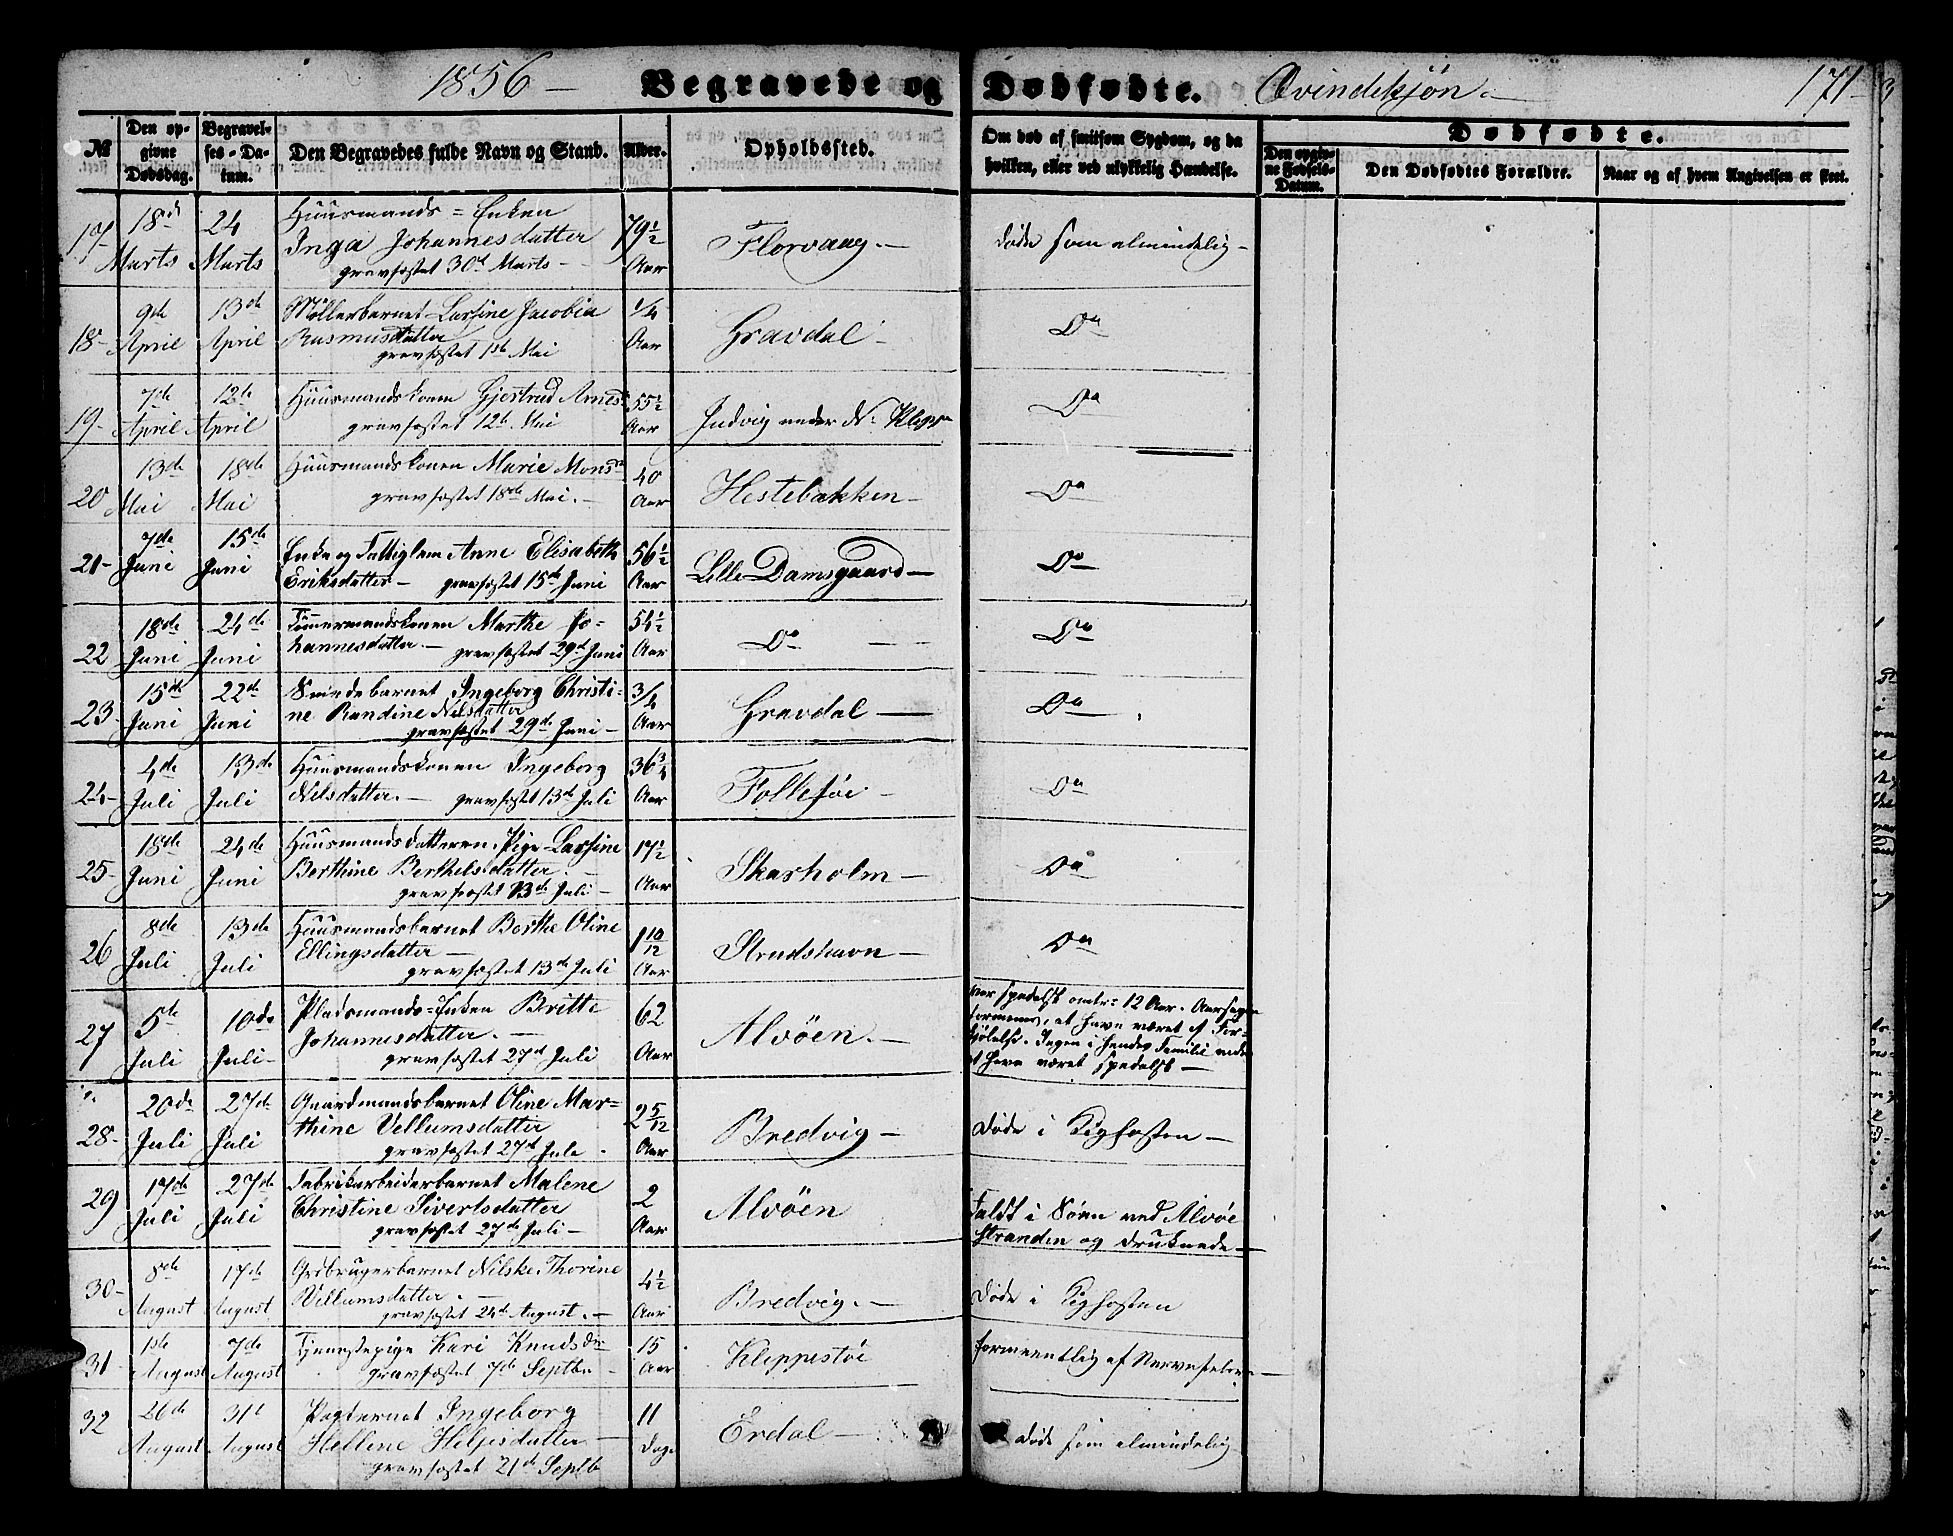 1856 — Begravede og Dødfødte. Qvindekjøn. — 171
№
Den opgivne Dødsdag.
Begravelses-Datum.
Den Begravedes fulde Navn og Stand.
Alder.
Opholdssted.
Om død af smitsom Sygdom, og da hvilken, eller ved ulykkelig Hændelse.
Dødfødte.
Den opgivne Fødsels-Datum.
Den Dødfødtes Forældre.
Naar og af hvem Angivelsen er skeet.
17- 18de Marts 24 Marts Huusmands-Enken
Inga Johannesdatter 79½ Aar Florvaag. — døde som almindelig —
gravfæstet 30te Marts —
18- 9de April 13de April Møllerbarnet Larsine Jacobia ¼ Aar Gravdal — Do
Rasmusdatter
gravfæstet 1ste Mai
19- 7de April 12te April Huusmandskonen Gjertrud Arnesd. 55½ Aar Indvig under N. Klepp Do
gravfæstet 12te Mai
20 13de Mai 18de Mai Huusmandskonen Marie Monsdr 40 Aar Hestebakken — Do
gravfæstet 18de Mai. —
21- 7de Juni 15de Juni Enke og Fattiglem Anne Elisabeth 56½ Aar Lille Damsgaard — Do
Eriksdatter — gravfæstet 15de Juni
22 18de Juni 24de Juni Tømmermandskonen Marthe Jo- 54½ Aar Do — Do
hannesdatter. — gravfæstet 29de Juni
23- 15de Juni 22de Juni Svendebarnet Ingeborg Christi- ¾ Aar Gravdal — Do
ne Randine Nilsdatter
gravfæstet 29de Juni —
24- 4de Juli 13de Juli Huusmandskonen Ingeborg 36¾ Aar Follesøe — Do
Nilsdatter. — gravfæstet 13de Juli
25- 18de Juni 24de Juni Huusmandsdatteren, Pige Larsine 17½ Aar Skarholm — Do
Berthine Berthelsdatter. —
gravfæstet 13de Juli —
26 8de Juli 13de Juli Huusmandsbarnet Berthe Oline 1 10/12 Aar Strudshavn — Do
Ellingsdatter —
gravfæstet 13de Juli
27 5te Juli 10de Juli — Pladsmands-Enken Britte 62 Aar Alvøen. — var spedalsk omtr. 12 Aar. Aarsagen
Johannesdatter. — formenes, at have været af For-
gravfæstet 27de Juli kjølelse. Ingen i hendes Familie vides
at have været spedalsk —
28- 20de Juli 27de Juli Gaardmandsbarnet Oline Mar- 2 5/12 Aar Bredvig — døde i Kighosten —
thine Vellumsdatter
gravfæstet 27de Juli
29 17de Juli 27de Juli Fabrikarbeiderbarnet Malene 2 Aar Alvøen Faldt i Søen ved Alvøe
Christine Sivertsdatter Stranden og druknede —
gravfæstet 27de Juli —
30- 8de August 17de August Grdbrugerbarnet Nilske Thorine 4½ Aar Bredvig. — døde i Kighosten
Vellumsdatter. —
gravfæstet 24de August. —
31- 1ste August 7de August Tjenestepige Kari Knudsdr 15 Aar Kleppestøe formeentlig af Nervefeber —
gravfæstet 7de Septbr —
32 26de August 31te August Ingeborg 11 Dage Erdal — døde som almindelig
Hellene Heljesdatter
gravfæstet 21de Septb